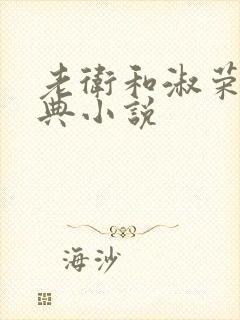 老衛和淑荣
典小説
海沙